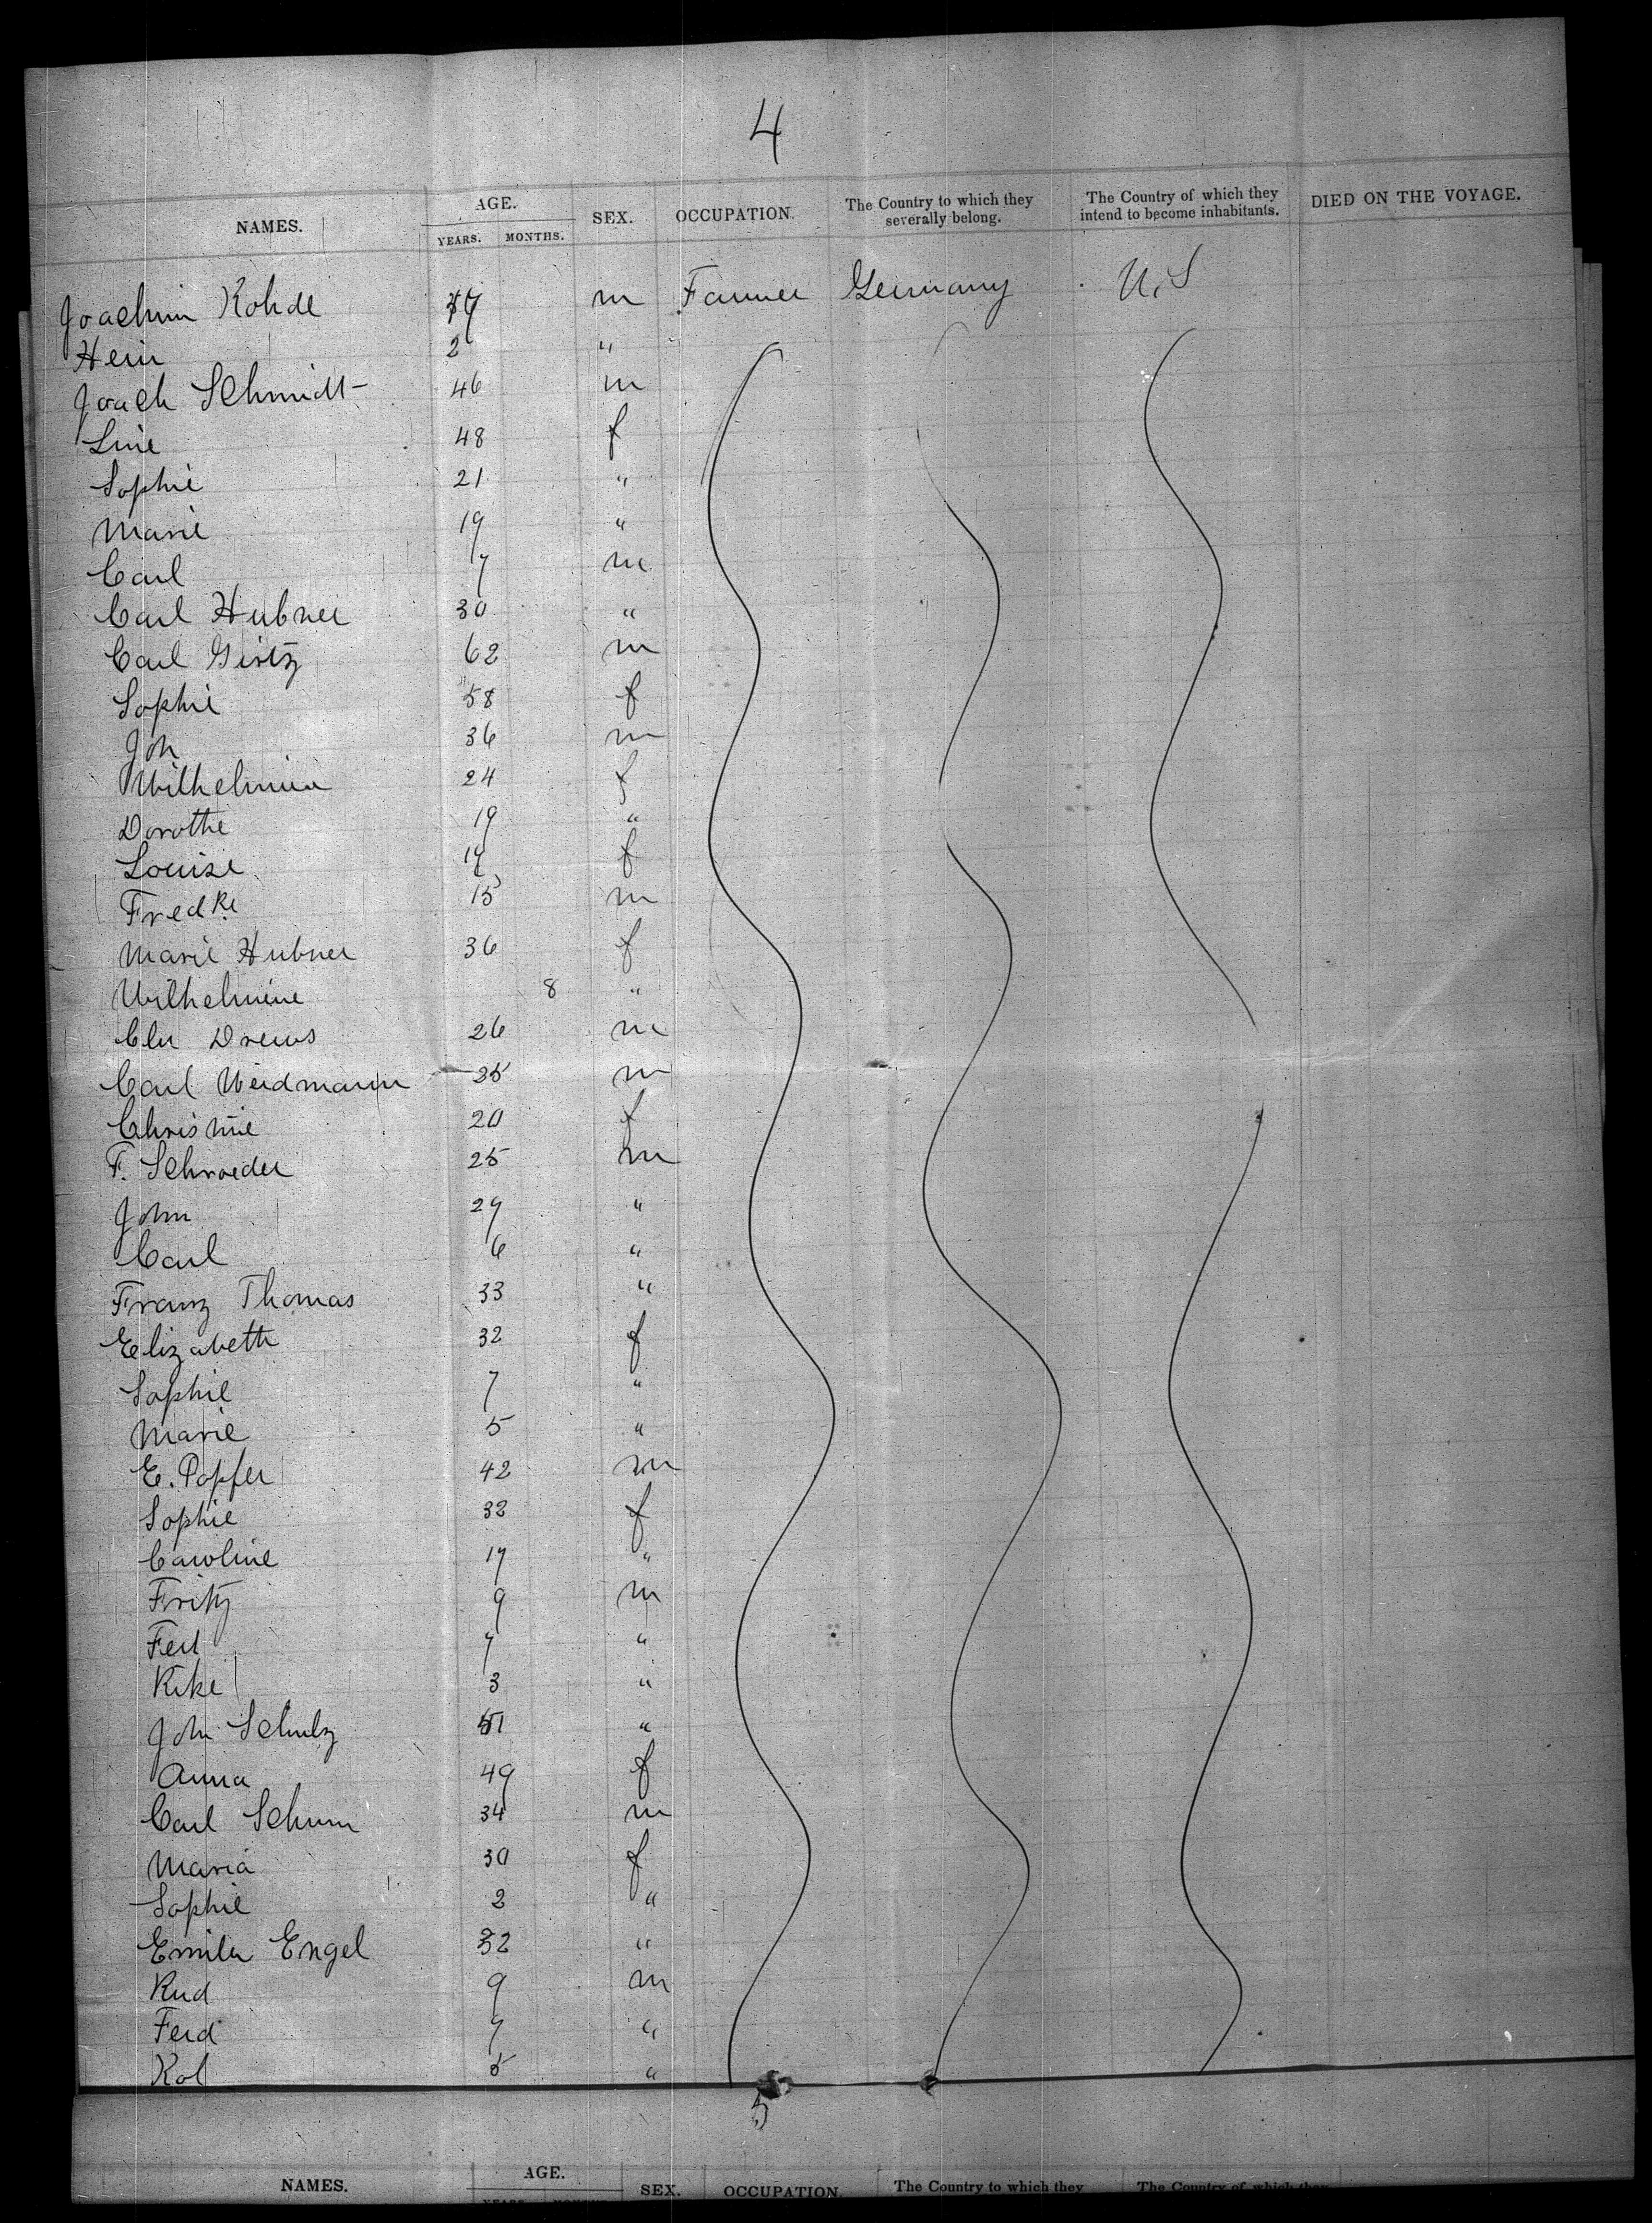 4
NAMES. AGE. YEARS. MONTHS. SEX. OCCUPATION. The Country to which they severally belong. The Country of which they intend to become inhabitants. DIED ON THE VOYAGE.
Joachim Rohde m Farmer Germany U.S
Hein 2 "
Joach Schmidt 46 m
Line 48 f
Sophie 21 "
Marie 19 "
Carl 7 m
Carl Hubner 30 "
Carl Girtz 62 m
Sophie 58 f
Joh 36 m
Wilhelmine 24 f
Dorothe 19 "
Louise 17 f
Fredke 15 m
Marie Hubner 36 f
Wilhelmine 8 "
Chr Drews 26 m
Carl Weidmann 25 m
Christine 20 f
F. Schroeder 25 m
John 27 "
Carl 6 "
Franz Thomas 33 "
Elizabeth 32 f
Sophie 7 "
Marie 5 "
E. Popfer 42 m
Sophie 32 f
Caroline 17 "
Fritz 9 m
Ferd 7 "
Rike 3 "
Joh Schulz 51 "
Anna 49 f
Carl Schum 34 m
Maria 30 f
Sophie 2 "
Emilie Engel 32 "
Rud 9 m
Ferd 7 "
Rol 5 "
5
NAMES. AGE. SEX. OCCUPATION. The Country to which they The Country of which they